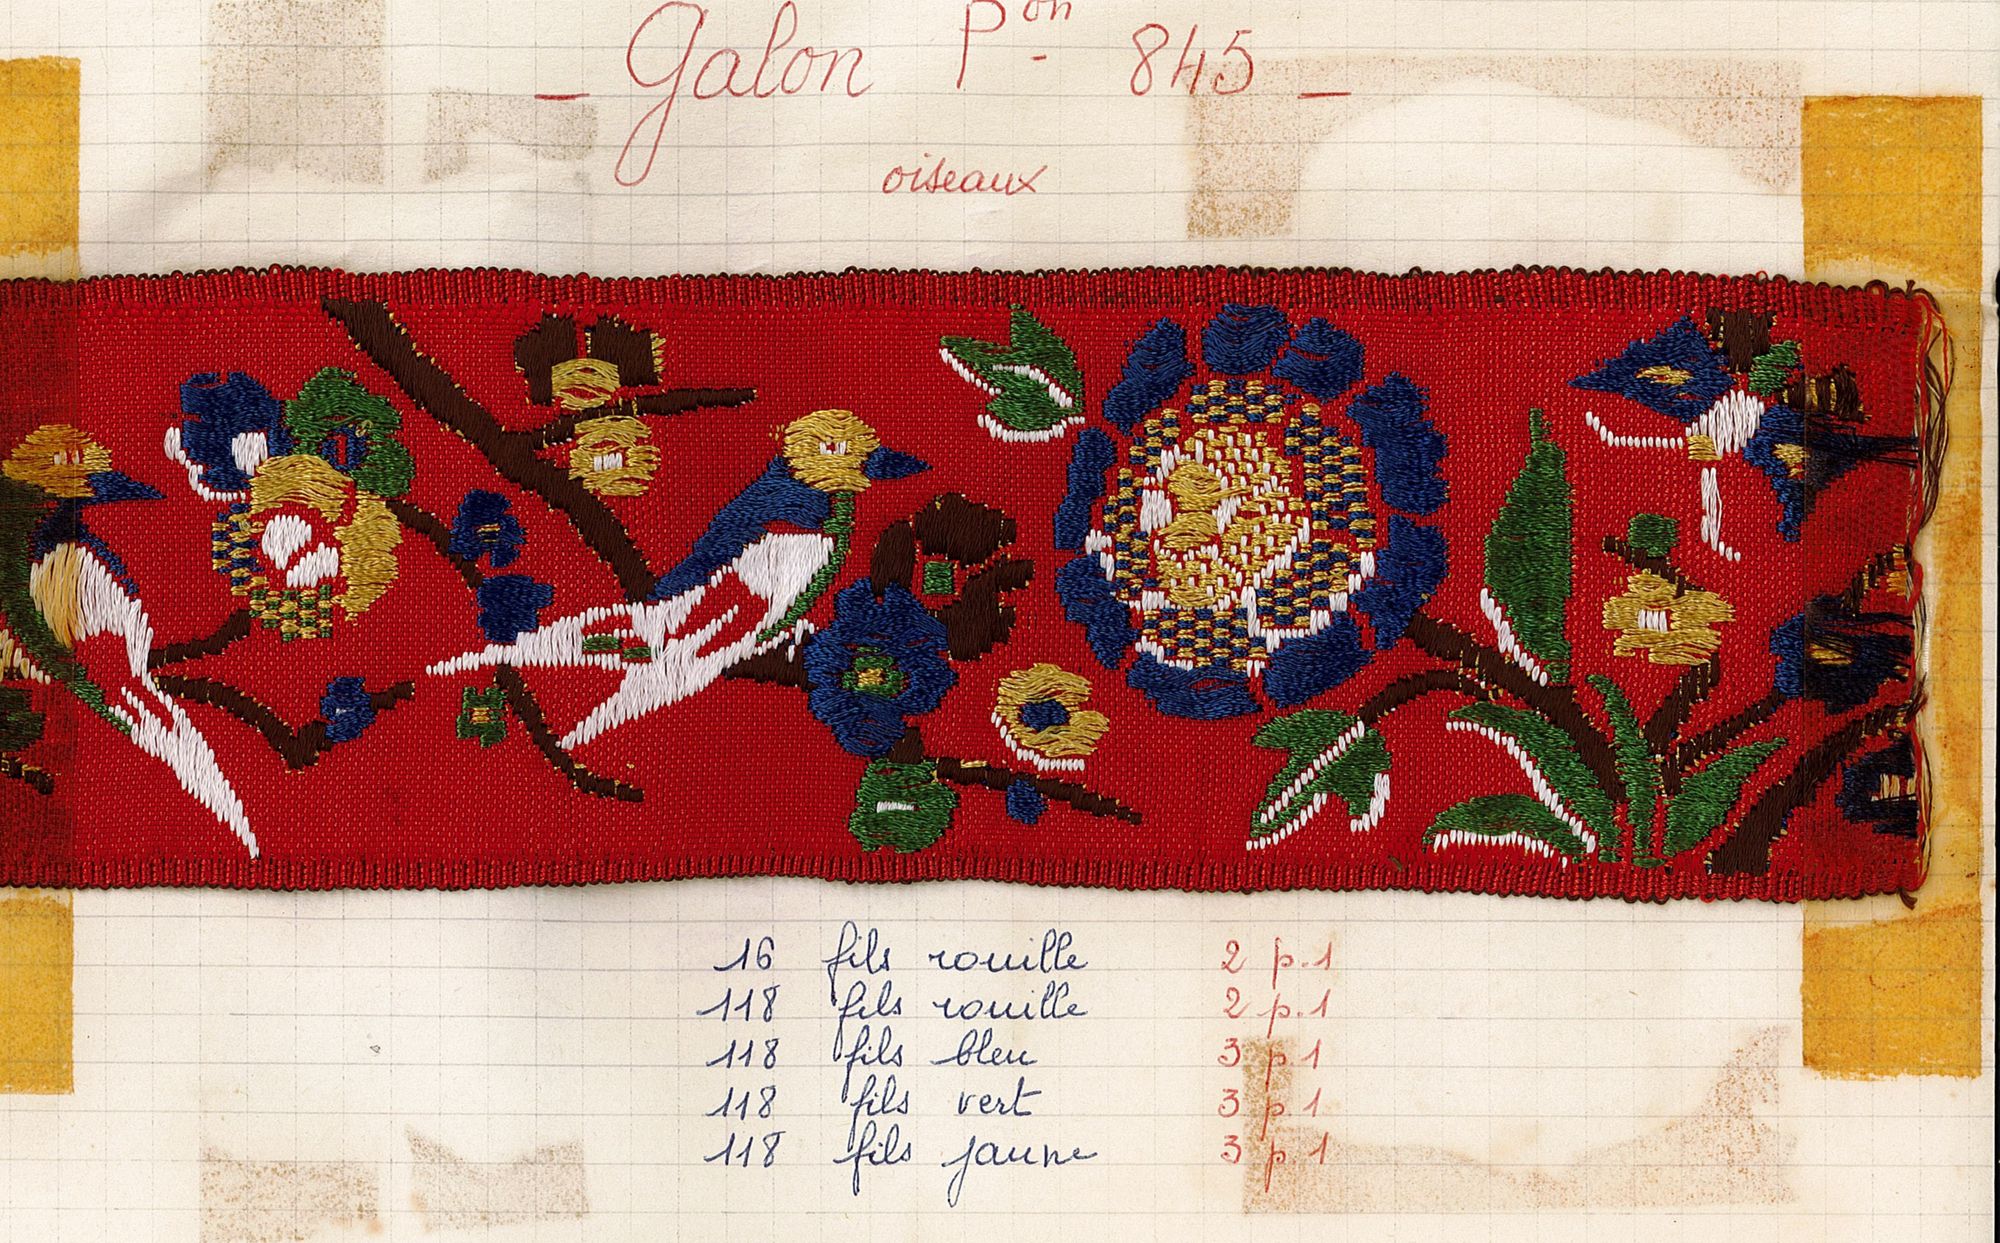 _ Galon Pon 845 _
oiseaux
16 fils rouille 2 p.1
118 fils rouille 2 p.1
118 fils bleu 3 p.1
118 fils vert 3 p.1
118 fils jaune 3 p.1